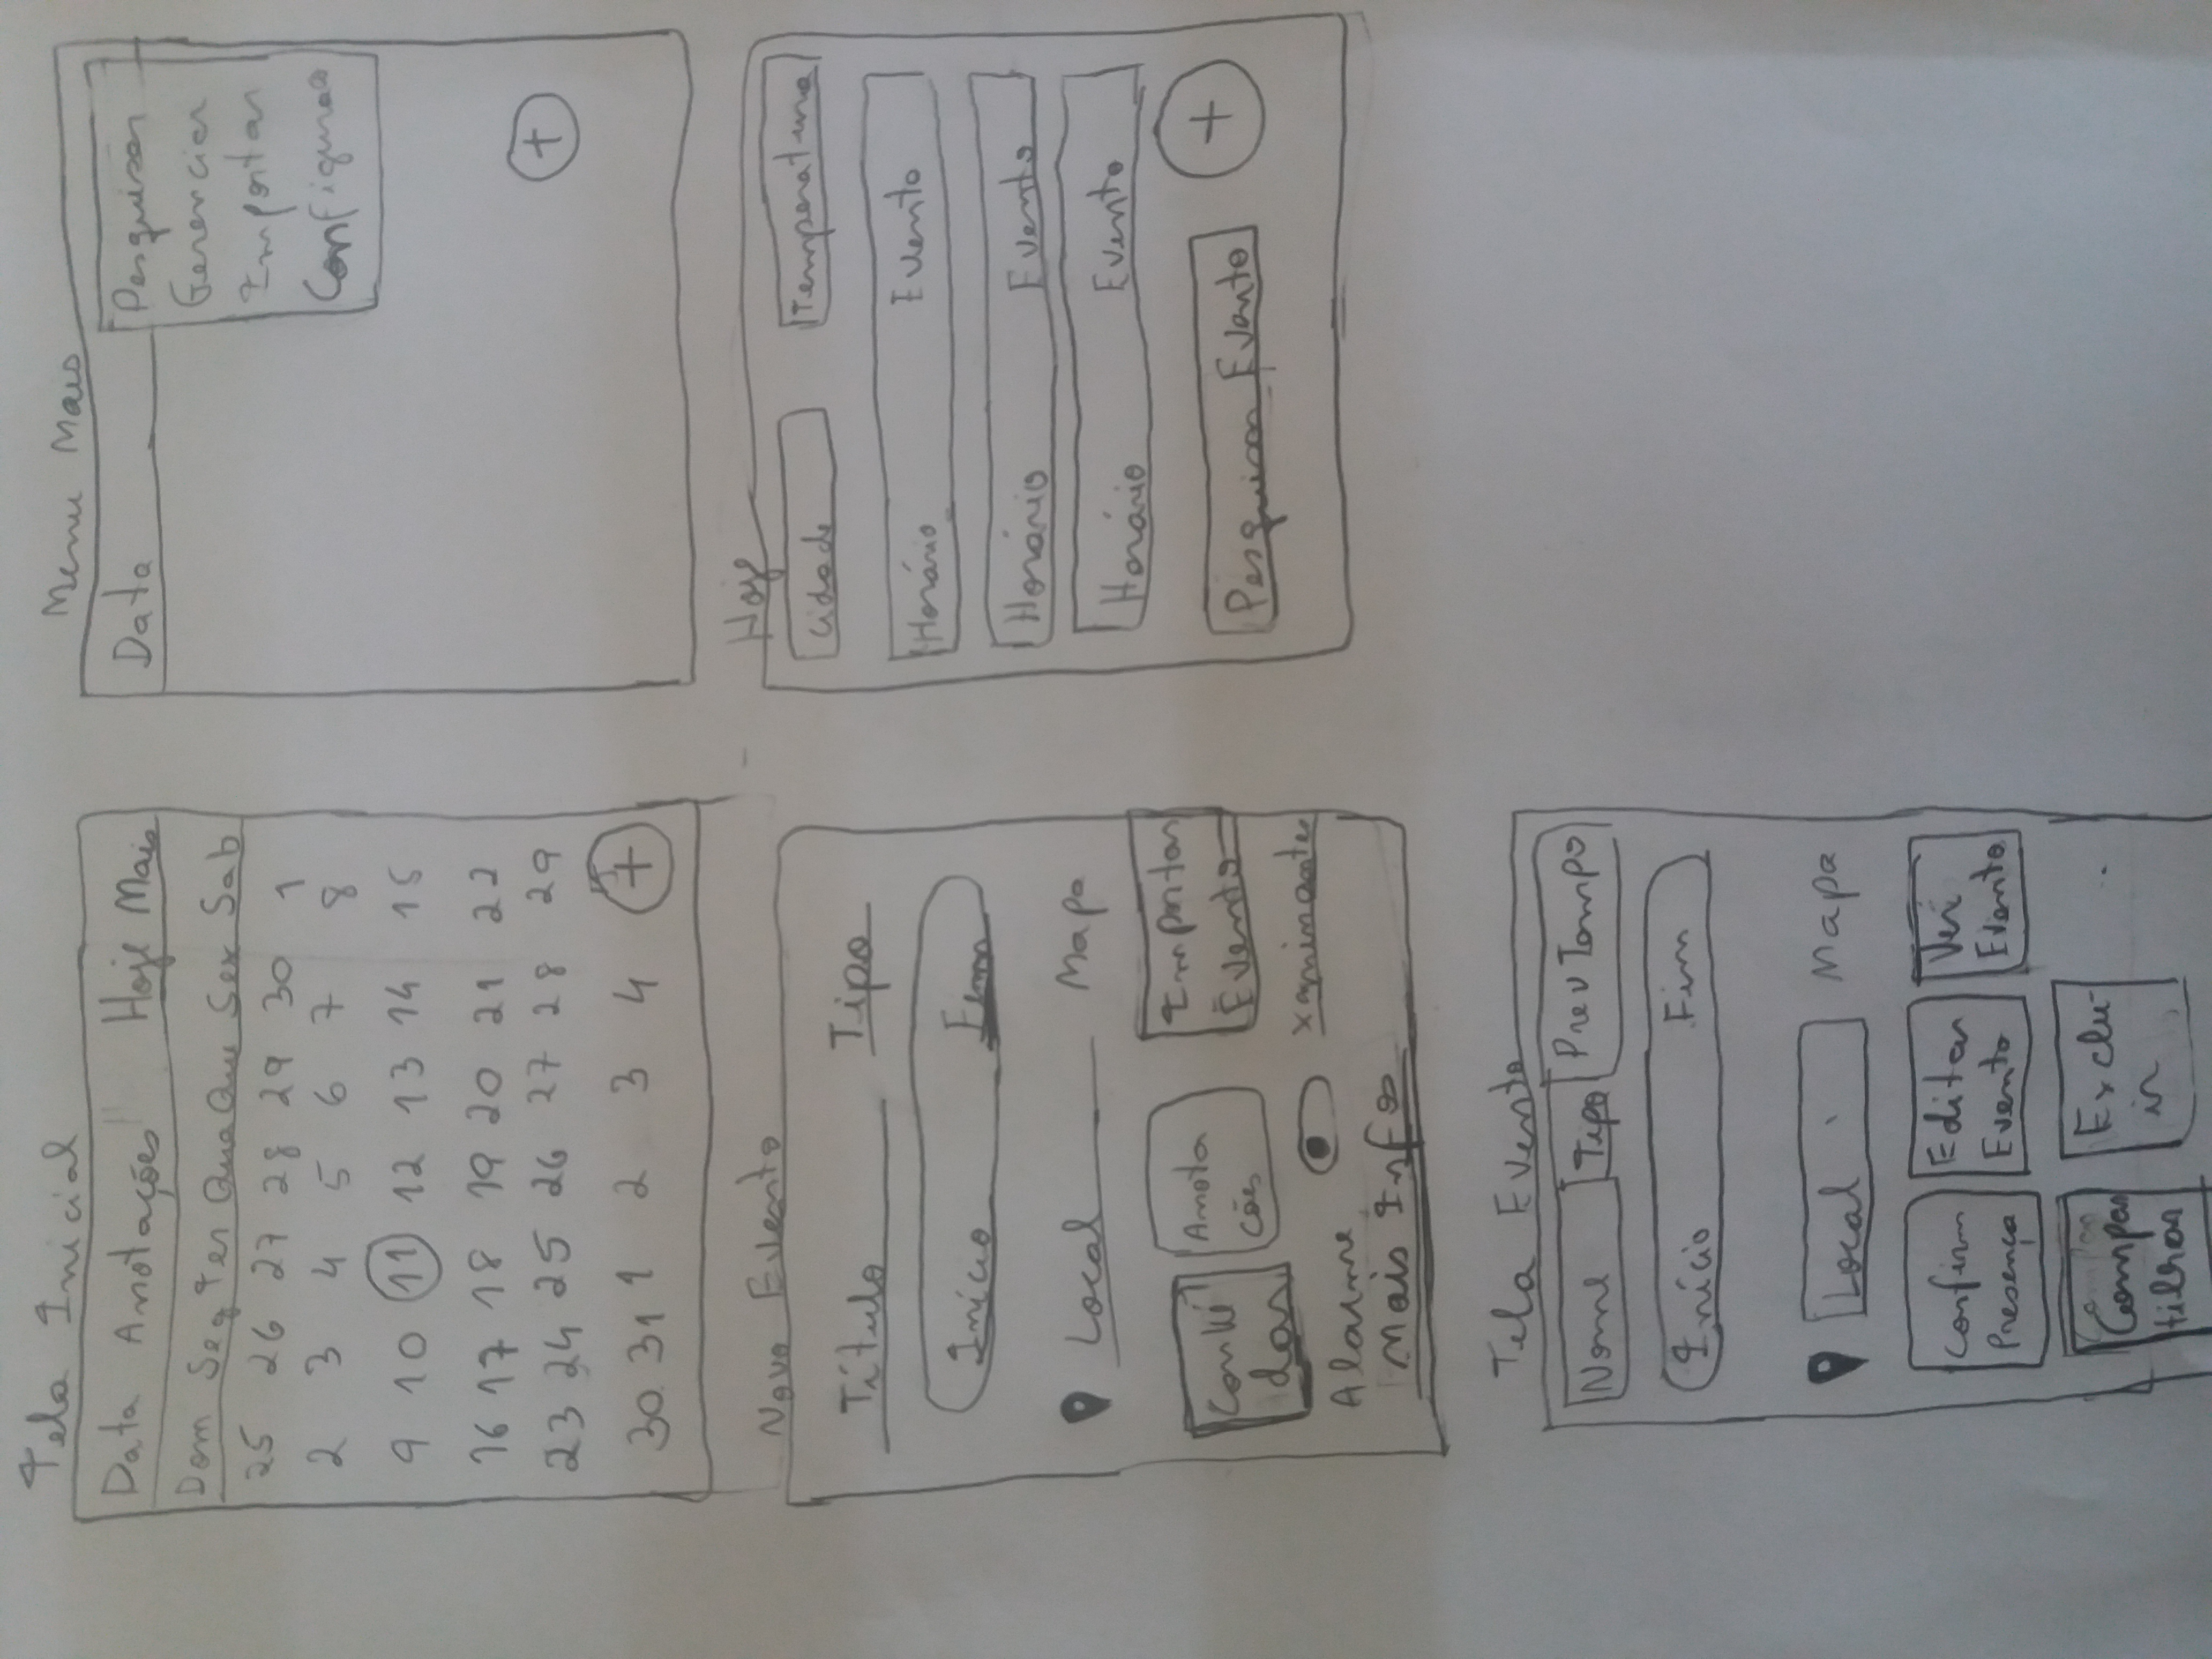 Tela Inicial
Data Anotações Hoje Mais
Dom Seg Ter Qua Qui Sex Sab
25 26 27 28 29 30 1
2 3 4 5 6 7 8
9 10 11 12 13 14 15
16 17 18 19 20 21 22
23 24 25 26 27 28 29
30 31 1 2 3 4 +
Menu Mais
Data
Pesquisar
Gerenciar
Importar
+
Novo Evento
Título Tipo
Início Fim
Local Mapa
Convi
dar
Anota
ções
Importar
Evento
Alarme
Mais Infos
Hoje
Cidade Temperatura
Horário Evento
Horário Evento
Horário Evento
Pesquisar Evento +
Tela Evento
Nome Tipo Prev Tempo
Início Fim
Local Mapa
Confirm
Presença
Editar
Evento
Ver
Evento
Compar
tilhar
Exclu-
ir